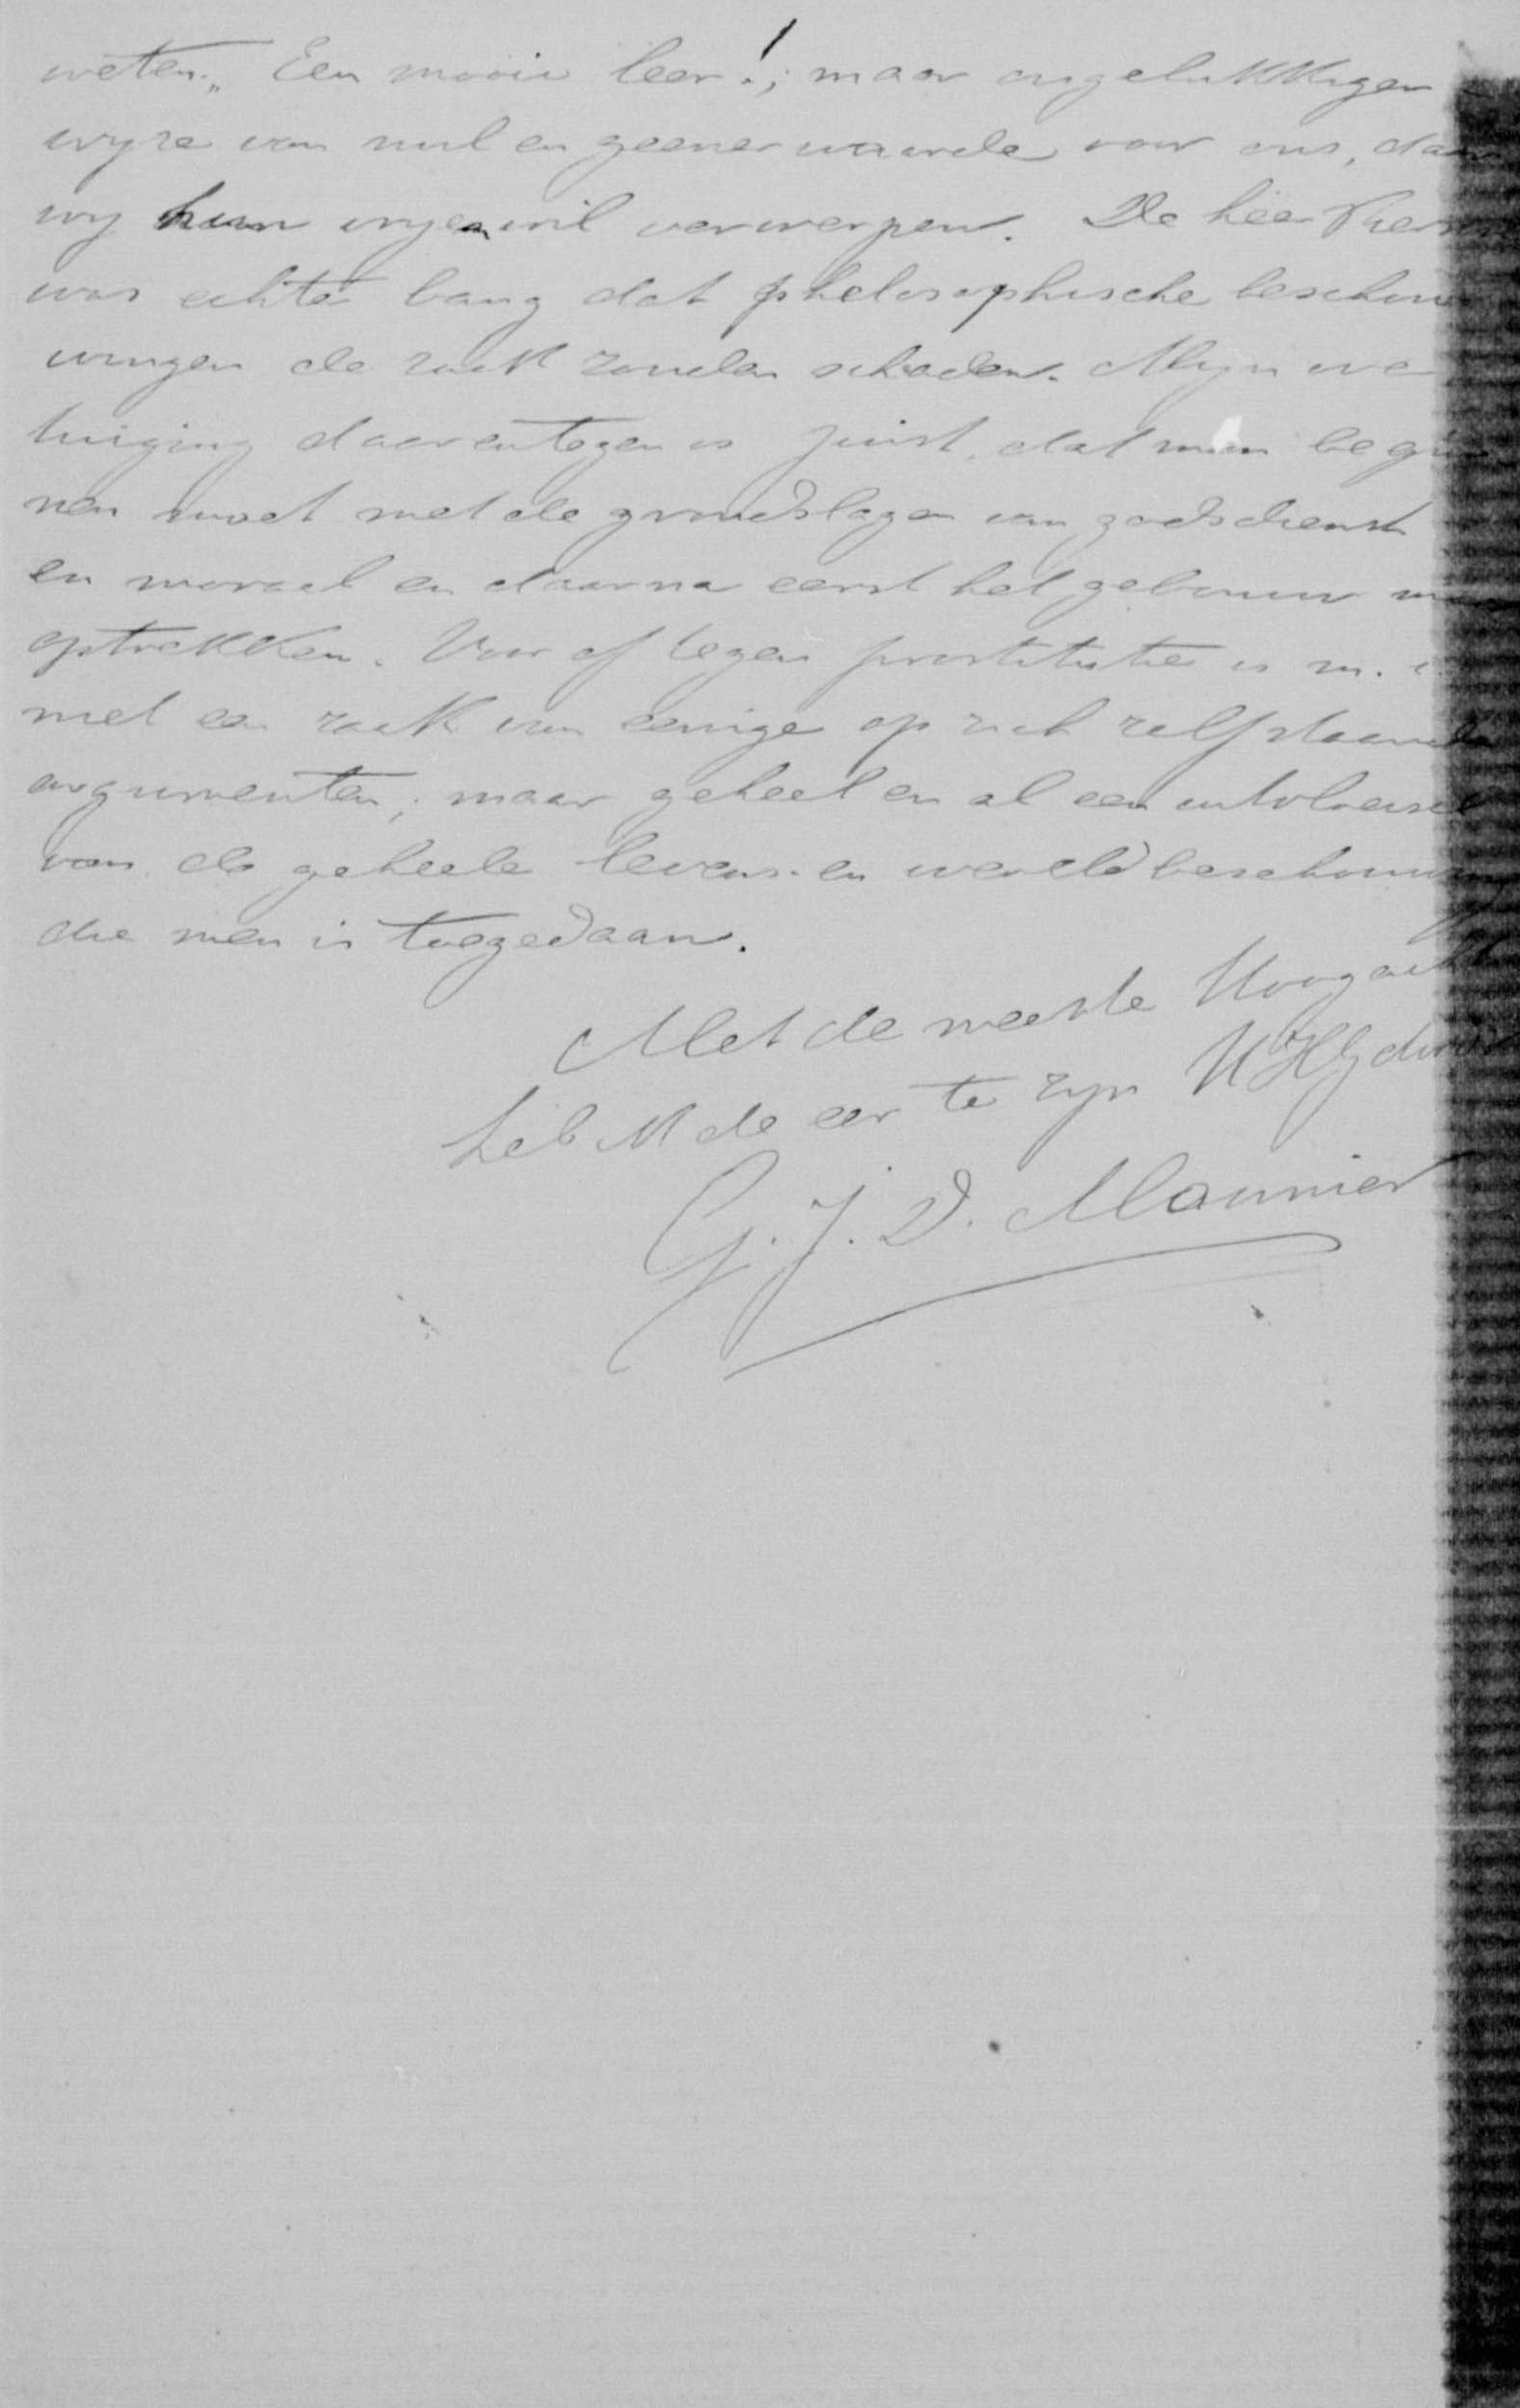 weten." Een mooie leer!; maar ongelukkiger
wyze van nul en geener waarde voor ons, daar
wy hun vryen wil verwerpen. De heer Pierson
was echter bang dat philosophische beschou
wingen de zaak zouden schaden. Mijn over
tuiging daarentegen is juist, dat men begin
nen moet met de grondslagen van godsdienst
en moraal en daarna eerst het gebouw
optrekken. Voor of tegen prostitutie is m. i.
niet een zaak van eenige op zich zelf staande
argumenten, maar geheel en al een uitvloeisel
van de geheele levens- en wereldbeschouwing
die men is toegedaan.
Met de meeste Hoogacht
heb ik de eer te zyn
G. J. D. Mounier